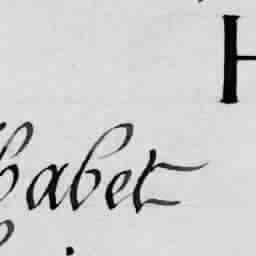 H
habet